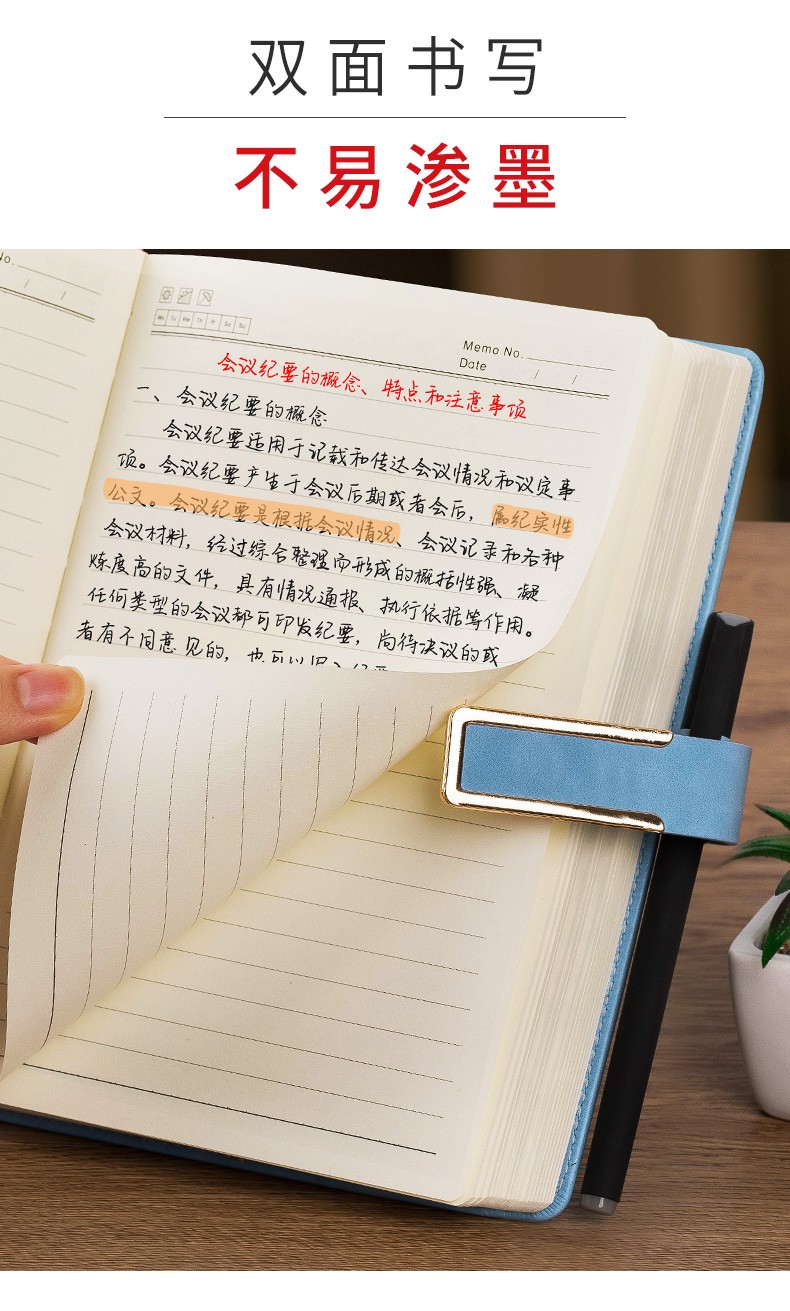 双面书写
不易渗墨
No.
/ /
Mo Tu We Th Fr Sa Su
Memo No.
Date / /
会议纪要的概念、特点和注意事项
一、会议纪要的概念
会议纪要适用于记载和传达会议情况和议定事
项。会议纪要产生于会议后期或者会后，属纪实性
公文。会议纪要是根据会议情况、会议记录和各种
会议材料，经过综合整理而形成的概括性强、凝
炼度高的文件，具有情况通报、执行依据等作用。
任何类型的会议都可印发纪要，尚待决议的或
者有不同意见的，也可以